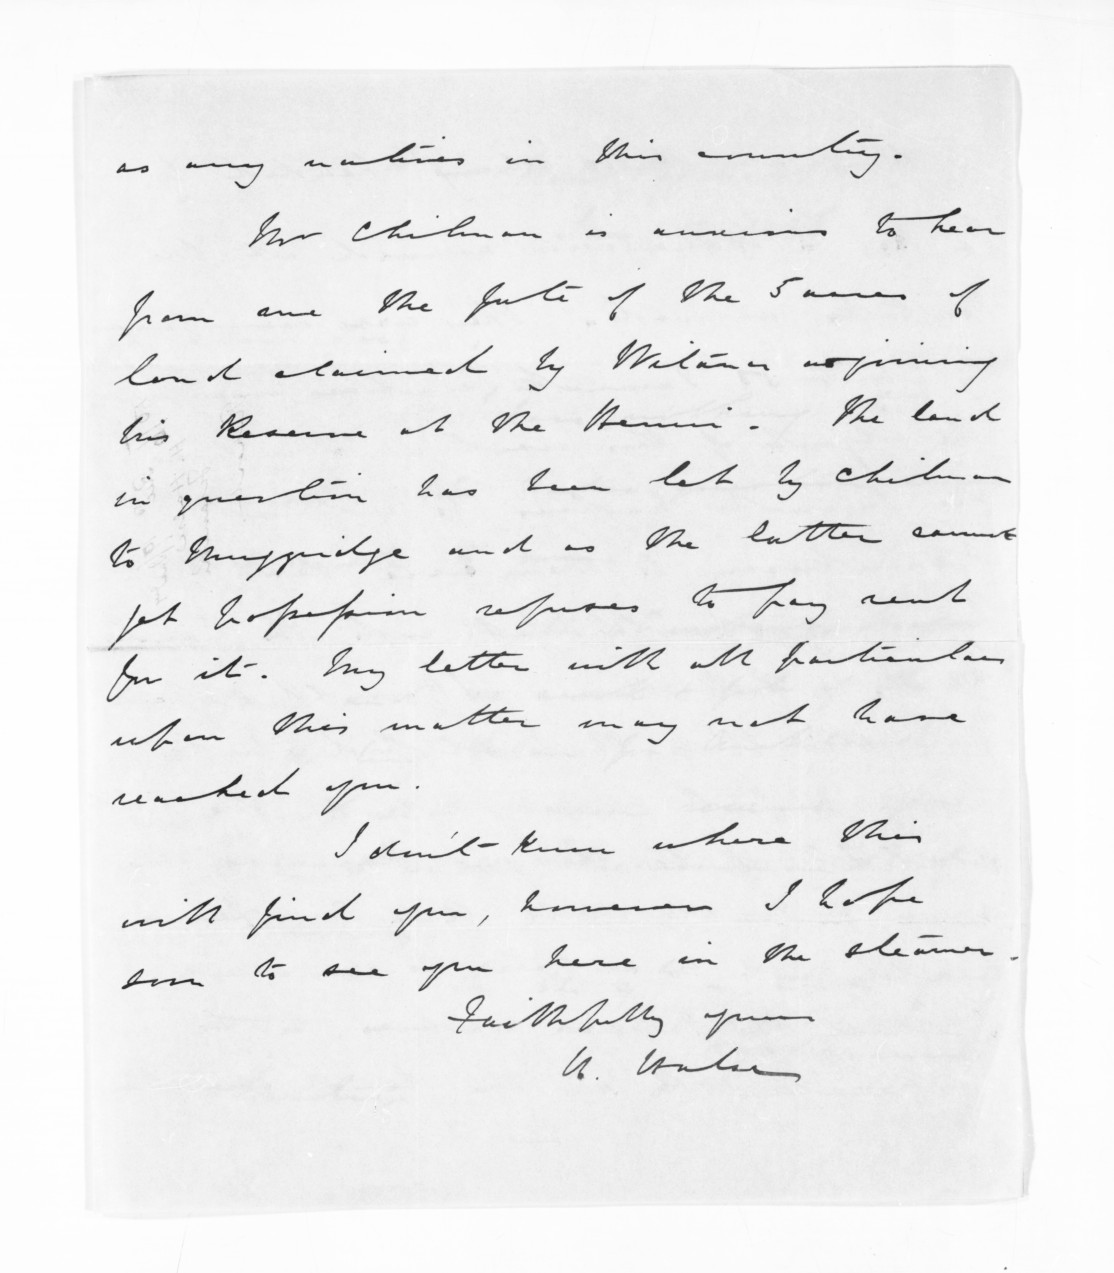 as any natives in this country.
Mr Chilman is anxious to hear
from me the fate of the 5 acres of
land claimed by Witana adjoining
his Reserve at the Henui. The land
in question has been let by Chilman
to Muggridge and as the latter cannot
get possession refuses to pay rent
for it. My letter with all particulars
upon this matter may not have
reached you.
I don't know where this
will find you, however I hope
soon to see you here in the steamer.
Faithfully yours
H. Halse